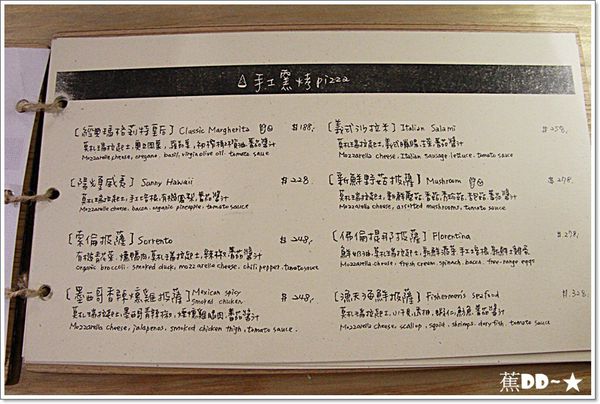 手工窯烤pizza
[經典瑪格莉特夏居] Classic Margherita $188.
莫札瑞拉起士、奧勒岡葉、羅勒葉、初榨橄欖油、蕃茄醬汁
Mozzarella cheese, oregano, basil, virgin olive oil. tomato sauce
[陽光夏威夷] Sunny Hawaii $228.
莫札瑞拉起士、手工培根、有機鳳梨、蕃茄醬汁
Mozzarella cheese, bacon. organic pineapple, tomato sauce
[索倫披薩] Sorrento $248.
有機花菜、燻鴨肉、莫札瑞拉起士、辣椒、蕃茄醬汁
organic broccoli. smoked duck, mozzarella cheese, chili, pepper, tomato sauce
[墨西哥香辣燻雞披薩] Mexican spicy smoked chicken $248.
莫札瑞拉起士、墨西哥香辣椒、煙燻雞腿肉、蕃茄醬汁
Mozzarella cheese, jalapenas, smoked chicken thigh, tomato sauce.
[義式沙拉米] Italian Salami $258.
莫札瑞拉起士、義式臘腸、蕃茄醬汁
Mozzarella cheese. Italian sausage lettuce. tomato sauce
[新鮮野菇披薩] Mushroom $278.
Mozzarella cheese, assorted mushrooms, tomato sauce
[佛倫提那披薩] Florentina $278.
鮮奶油、莫札瑞拉起士、新鮮菠菜、手工培根、新鮮土雞蛋
Mozzarella cheese, fresh cream, spinach, bacon, free-range eggs
[漁夫海鮮披薩] Fishermen's Seafood $328.
莫札瑞拉起士、小干貝、透抽、蝦仁、魷魚、蕃茄醬汁
Mozzarella cheese, scallop, squid, shrimps, dory fish, tomato sauce
蕉DD~★